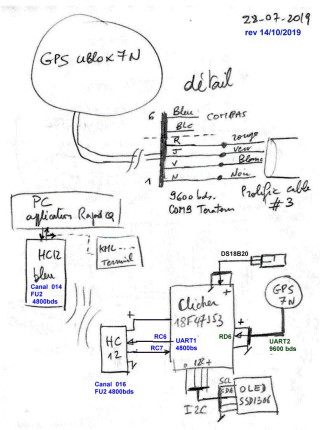 28-07-2019
rev 14/10/2019
GPS uBlox 7N
détail
6 Bleu COMPAS
Blc
R rouge
J Vert
V Blanc
1 N Noir
9600 bds.
COM9 Teraterm
Prolific cable
#3
PC
application Rapid Q
HC12
bleu
Canal 014
FU2
4800bds
KML
Terminal
DS18B20
Clicker
18F47J53
GPS
7N
+
RC6
RC7
UART1
4800bs
RD6
UART2
9600 bds
HC
12
Canal 016
FU2 4800bds
I2C
SCL
SDA
OLED
SSD1306